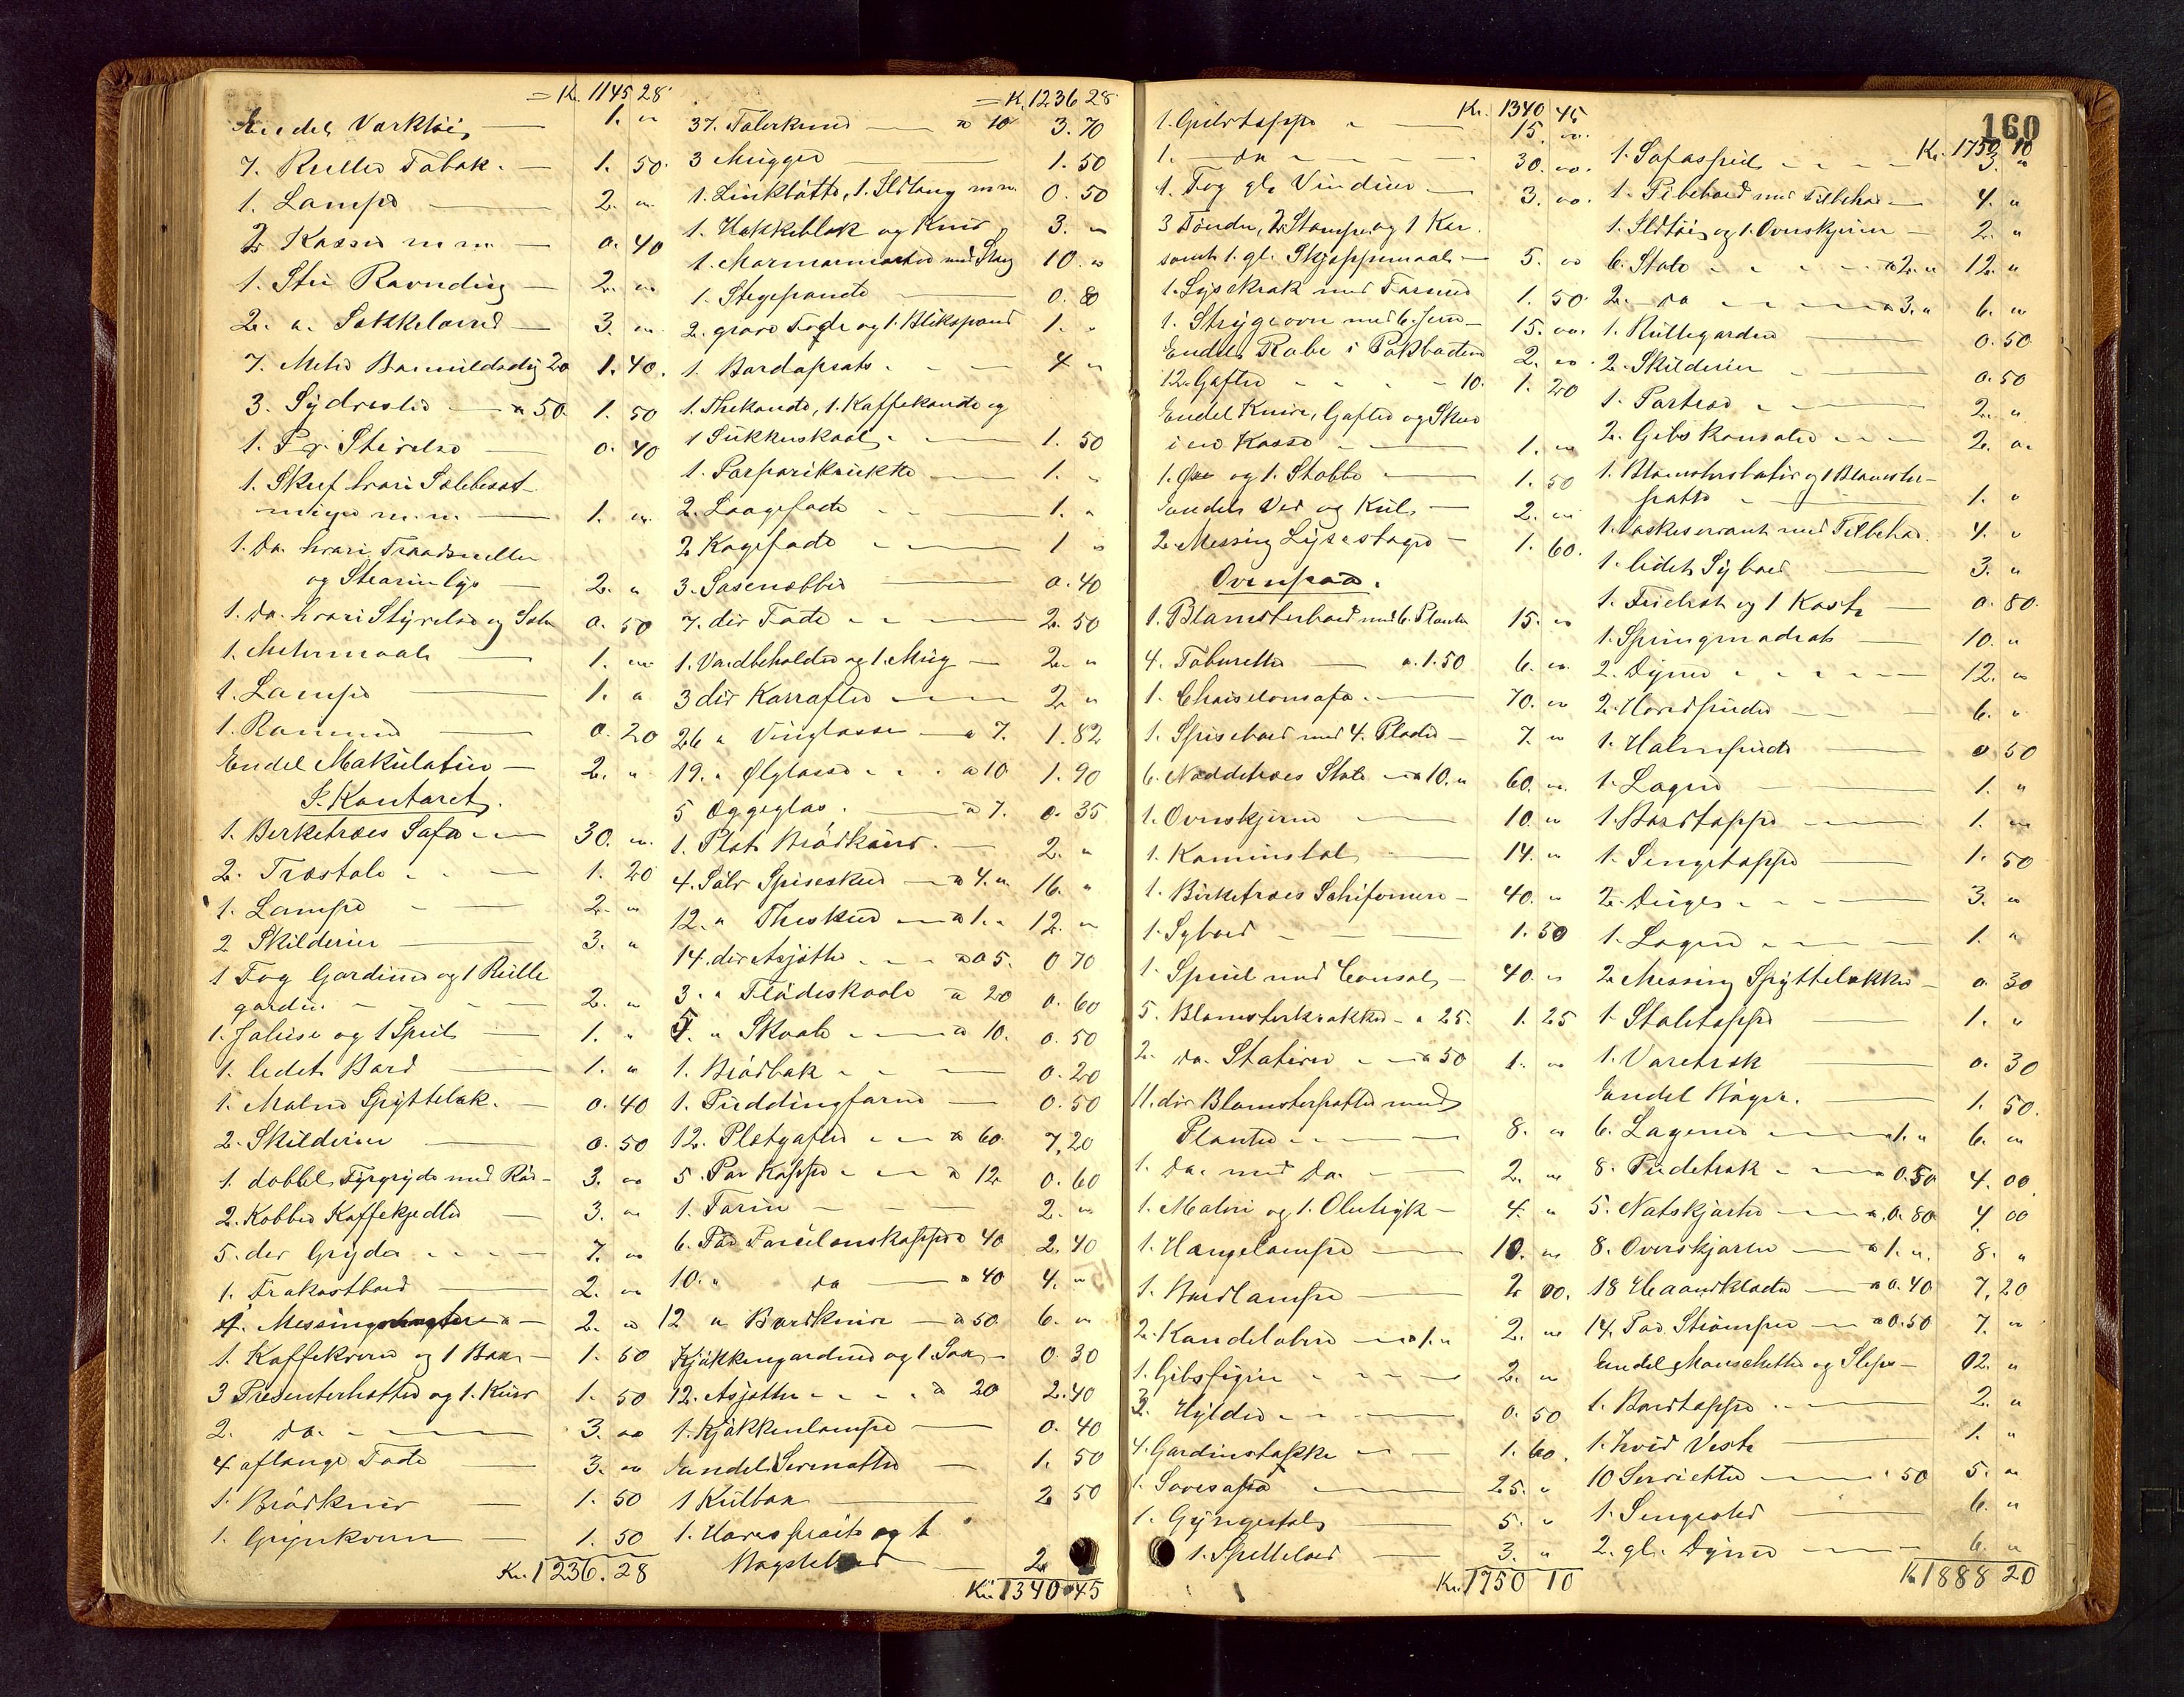 = Kr. 1145 28
Endel Værktøi — 1. "
7. Ruller Tobak. — 1. 50.
1. Lampe — 2. "
2 Kasser m. m. — 0. 40
1. Sti — 2. "
2. " — 3. "
7. Meter 20 1. 40.
3. — a 50. 1. 50
1. 0. 40
1. Skuf hvori
m.m. — 1. "
1. Do. hvori Traadsneller
og Stearinlys — 2. "
1. Do. hvori og 0. 50
1. Metermaal — 1. "
1. Lampe — 1. "
1. 0. 20
Endel Makulatur — 2. "
I Kontoret.
1. Berketræes Sofa — 30. "
2. Træstole — 1. 20
1. Lampe — 2. "
2 Skilderier — 3. "
1 Fag Gardiner og 1 Rulle
gardin — 2. "
1. Jalusi og 1 Speil — 1. "
1. lidet Bord — 1. "
1. Malm Spyttebak. — 0. 40
2. Skilderier — 0. 50
1. dobbel med Rør — 3. "
2. Kobber Kaffekjedler — 3. "
5. div Gryder — 7. "
1. Frokostbord — 2. "
4. Messing — 2. "
1. Kaffekvern og 1 — 1. 50
3 Presenterbætter og 1. Kurv 1. 50
2. do. — 3. "
4 aflange Fade — 3. "
1. Brødkniv — 1. 50
1. Grynkvern — 1. 50
Kr. 1236. 28
= Kr. 1236 28
37. Talerkener — a 10 3. 70
3 Mugger — 1. 50
1. 1. Ildtang m.m. 0. 50
1. Hakkeblok og Kniv 3. "
1. Marmormorter med 10. "
1. Stegepande — 0. 80
2. grove Fade og 1. Blikspand 1. "
1. Bordopsats — 4 "
1. Thekande, 1. Kaffekande og
1 Sukkerskaal — 1. 50
1. — 1. "
2. Laagefade — 1. "
2 Kagefade — 1 "
3. Sosenæbber — 0. 40
7. div Fade — 2. 50
1. Vandbeholder og 1. Mug — 2. "
3 div Karafler — 2. "
26 " Vinglasse — a 7. 1. 82
19. " Ølglasse — a 10 1. 90
5 Æggeglas. — a 7. 0. 35
1. Plet Brødkurv. — 2. "
4. Sølv Spiseskeer — a 4. " 16. "
12. " Theskeer — a 1. " 12. "
14. div Asjetter — a 05. 0 70
3. " Flødeskaale a 20 0. 60
5. " Skaale — a 10. 0. 50
1. Brødbak — 0. 20
1. Puddingform — 0. 50
12. Pletgafler — a 60 7,20
5. Par Kopper — a 12 0. 60
1. — 2. "
6. Par Porcelænskopper 40 2. 40
10. " do — a 40 4. "
12 " Bordknive — a 50 6. "
Kjøkkengardiner og 1. — 0. 30
12. Asjetter — a 20 2. 40
1. Kjøkkenlampe — 0. 40
Endel — 1. 50
1 Kulbox — 2 50
1. og 1
— 2
Kr. 1340. 45
Kr. 1340 45
1. Gulvtæppe — 15. "
1. — do — 30. "
1. Fag gl. Vinduer — 3. "
3 Tønder, 2 Stamper og 1 Kar
samt 1. gl. Skjæppemaal — 5. "
1. med 1. 50
1. Strygeovn med 6. Jern — 15. "
Endel i 2. "
12. Gafler — 10. 1. 20
Endel Knive, Gafler og Skeer
i en Kasse — 1. "
1. Øxe og 1. Stabbe — 1. 50
Endel Ved og Kul — 2. "
2. Messing Lysestager — 1. 60.
Ovenpaa.
1. Blomsterbord med 6. Planter 15. "
4. Taburetter — a. 1. 50 6. "
1. Chaiselonsofa. — 70. "
1. Spisebord med 4. Plader — 7. "
6. Nøddetræes Stole — a 10. " 60. "
1. Ovnskjerm — 10. "
1. Kaminstol — 14. "
1. Birketræes Schifonniere — 40. "
1. Sybord — 1. 50
1. Speil med Consol — 40. "
5. Blomsterkrukker — a 25. 1. 25
2. do. Stativer — a 50 1. "
11. div Blomsterpotter med
Planter — 8. "
1. Do. med Do. — 2. "
1. Maleri og 1. Olietryk — 4. "
1. Hængelampe — 10. "
1. Bordlampe — 2 00.
2. Kandelabere — a 1. " 2. "
1. Gibsfigur — 2. "
3. Hylder — 0. 50
4. Gardinstokke — 1. 60.
1. Sovesofa — 25. "
1. Gyngestol — 5. "
1. Spillebord — 3. "
Kr. 1750 10
160
Kr. 1750 10
1. Sofaspeil — 3. "
1. Pibebord med Tilbehør — 4. "
1. Ildtøi og 1. Ovnskjerm — 2. "
6. Stole — a 2. " 12. "
2. — do — a 3. " 6. "
1. Rullegardin — 0. 50
2. Skilderier — 0. 50
1. — 2. "
2. Gibs Konsoler — 2. "
1. Blomsterstativ og 1 Blomster-
potte — 1. "
1. Vaskeservant med Tilbehør. 4. "
1. lidet Sybord — 3. "
1. og 1 Kost — 0. 80.
1. Springmadrats — 10. "
2. Dyner — 12. "
2. Hovedpuder — 6. "
1. Halmpude — 0 50
1. Lagen — 1. "
1. Bordtæppe — 1. "
1. Sengetæppe — 1. 50
2. Duge — 3. "
1. Lagen — 1. "
2. Messing Spyttebakker — 0. 30
1. Stoletæppe — 1. "
1. Varetræk — 0. 30
Endel Bøger. — 1. 50.
6. Lagener — 1. " 6. "
8. Pudetræk — 0. 50 4. 00
5. Natskjorter — a. 0. 80 4. 00
8. Overskjorter — a 1. " 8. "
18 Haandklæder — a 0. 40 7,20
14. Par Strømper — a 0. 50 7. "
Endel Manschetter og Slips — 2. "
1. Bordtæppe — 2. "
1. hvid Vest — 1. "
10 Servietter — 50 5. "
1. Sengested — 6. "
2. gl. Dyner — 6. "
Kr. 1888 20